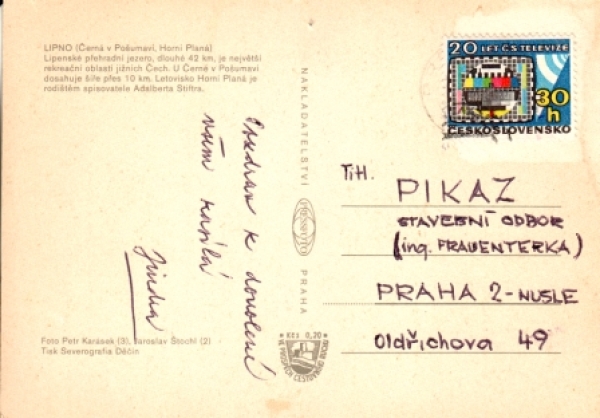 LIPNO (Černá v Pošumaví, Horní Planá)
Lipenské přehradní jezero, dlouhé 42 km, je největší
rekreační oblastí jižních Čech. U Černé v Pošumaví
dosahuje šíře přes 10 km. Letovisko Horní Planá je
rodištěm spisovatele Adalberta Stiftra.
Pozdrav z dovolené
vám zasílá
Jindra
Foto Petr Karásek (3), Jaroslav Štochl (2)
Tisk Severografia Děčín
NAKLADATELSTVÍ
PRESSFOTO
PRAHA
Kčs 0,20
20 LET ČS TELEVIZE
30
h
ČESKOSLOVENSKO
Tit.
PIKAZ
STAVEBNÍ ODBOR
(ing. FRAUENTERKA)
PRAHA 2-NUSLE
Oldřichova 49